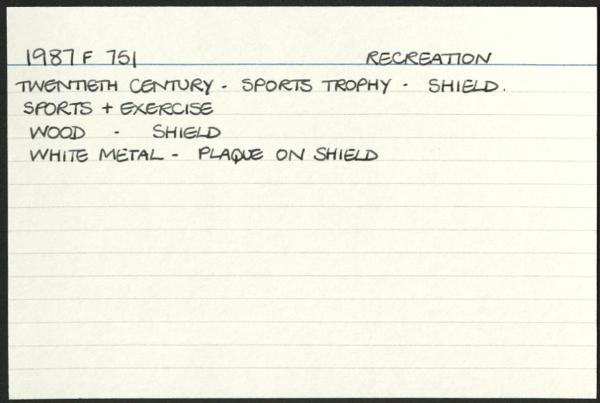 1987 F 751 RECREATION
TWENTIETH CENTURY - SPORTS TROPHY - SHIELD.
SPORTS + EXERCISE
WOOD - SHIELD
WHITE METAL - PLAQUE ON SHIELD